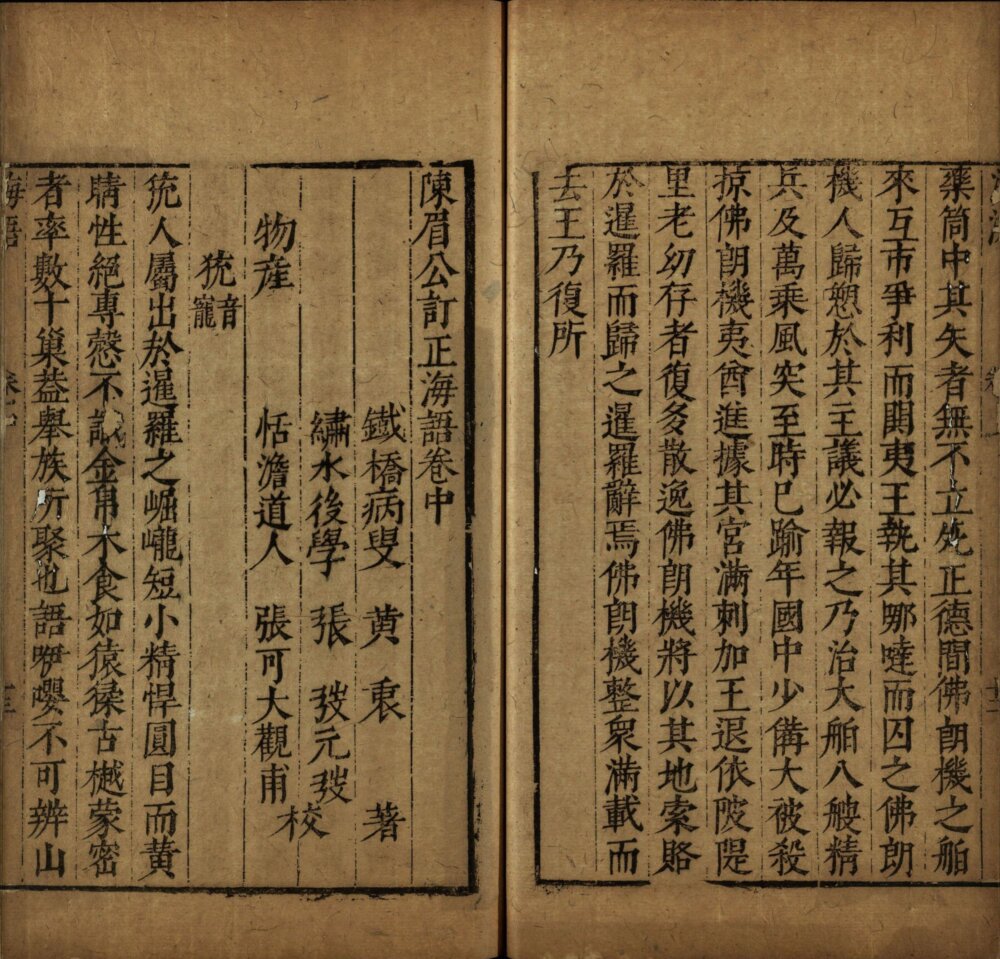 藥筒中其矢者無不立死正德間佛朗機之舶
來互市爭利而閧夷王執其哪噠而囚之佛朗
機人歸愬於其主議必報之乃治大舶八艘精
兵及萬乘風突至時已踰年國中少備大被殺
掠佛朗機夷酋進據其宮滿剌加王退依陂隄
里老幼存者復多散逸佛朗機將以其地索賂
於暹羅而歸之暹羅辭焉佛朗機整眾滿載而
去王乃復所
陳眉公訂正海語卷中
鐵橋病叟 黃衷 著
繡水後學 張弢元弢
恬澹道人 張可大觀甫 校
物產
㺜音寵
㺜人屬出於暹羅之崛巃短小精悍圓目而黃
睛性絕專慤不識金帛木食如猿猱古樾蒙密
者率數十巢葢舉族所聚也語咿嚶不可辨山
海語